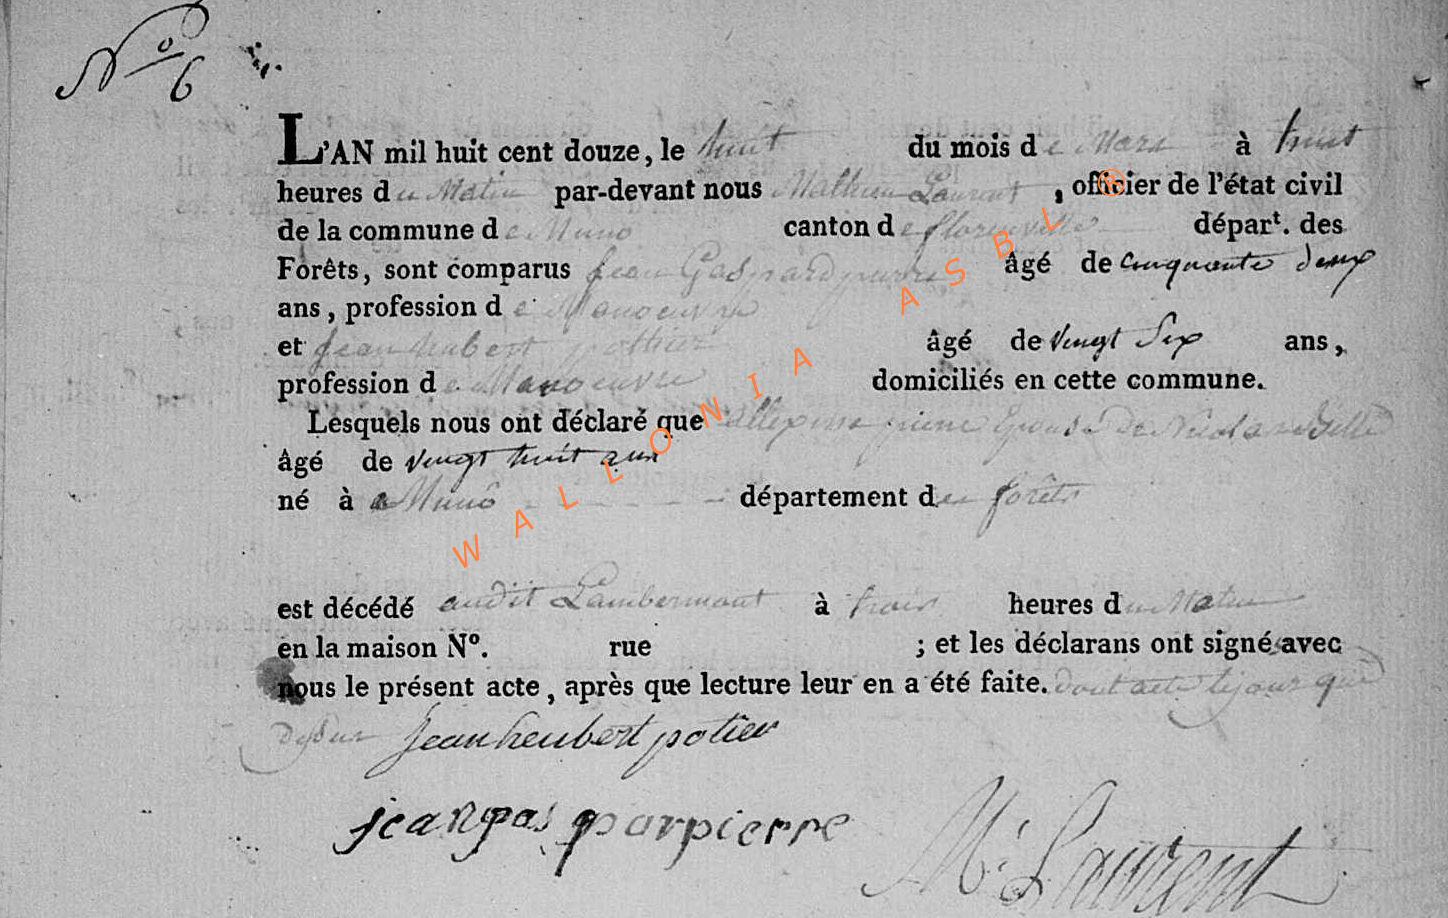 N° 6
L'AN mil huit cent douze, le huit du mois de Mars à huit
heures du Matin par-devant nous Mathieu Laurent, officier de l'état civil
de la commune de Muno canton de florenville départ. des
Forêts, sont comparus Jean Gaspard pierre âgé de cinquante deux
ans, profession de Manoeuvre
et Jean hubert pothier âgé de vingt Six ans,
profession de Manoeuvre domiciliés en cette commune.
Lesquels nous ont déclaré que Epouse De Nicolas
âgé de vingt huit ans
né à Muno département des forêts
est décédé audit Lambermont à trois heures du Matin
en la maison N°. rue ; et les déclarans ont signé avec
nous le présent acte, après que lecture leur en a été faite. dont acte le jour que
Dessus jean heubert potier
jean gas parpierre
M. Laurent
WALLONIA ASBL ®